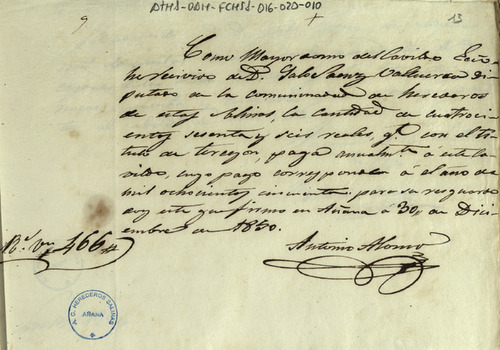 ATHS-DAH-FCHSS-016-020-010
9
13
Como Mayordomo del Cavildo Ecco
he recivido de Dn Saenz Valluerca di-
putado de la comunidad de herederos
de estas Salinas, la cantidad de cuatroci-
entos sesenta y seis reales, qe con el tí-
tulo de terczon, paga anualmte á este Ca-
vildo, cuyo pago corresponde á el año de
mil ochocientos cincuenta: para su resguardo
doy este que firmo en Añana á 30, de Dici-
embre de 1850.
Rs Vn 466
Antonio Alonso
A. C. HEREDEROS SALINAS
AÑANA